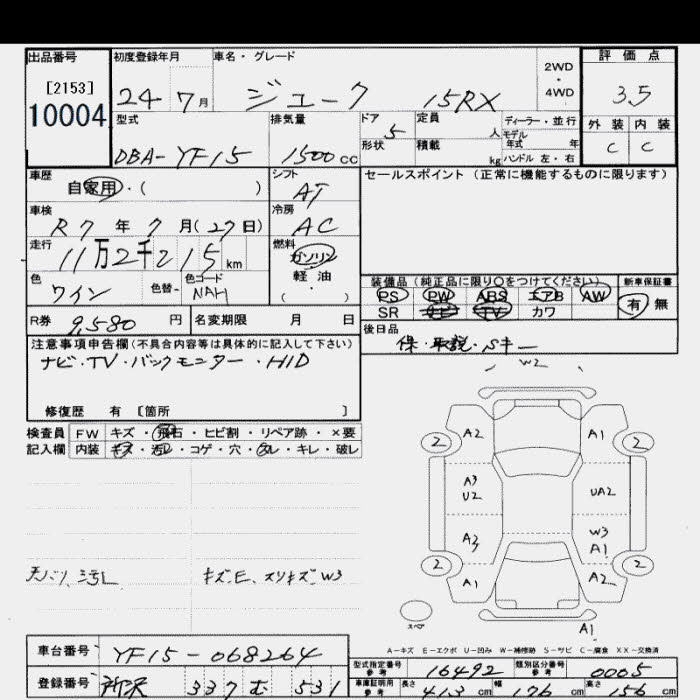 出品番号
[2153]
10004
初度登録年月
24 7月
車名・グレード
ジューク 15RX
2WD
・
4WD
評価点
3.5
外装 内装
C C
型式
DBA-YF15
排気量
1500cc
ドア
5
形状
定員
人
積載
kg
ディーラー・並行
モデル
年式 年
ハンドル 左・右
車歴
自家用・( )
シフト
AT
セールスポイント(正常に機能するものに限ります)
車検
R7年7月(27日)
冷房
AC
走行
11万2千215km
燃料
ガソリン
軽・油
・
( )
色
ワイン
色替-
色コード
NAH
装備品(純正品に限り○をつけてください)
PS PW ABS エアB AW
SR ナビ TV カワ
新車保証書
有 無
R券 9,580 円
名変期限 月 日
後日品
保・取説・Sキー
注意事項申告欄(不具合内容等は具体的に記入して下さい)
ナビ・TV・バックモニター・HID
修復歴 有 [箇所 ]
検査員
記入欄
FW キズ・飛石・ヒビ割・リペア跡・×要
内装 キズ・汚レ・コゲ・穴・スレ・キレ・破レ
キズE、スリキズW3
W2
2 A2 A1 2
A3
U2
UA2
A2
W3
A1
2 A1 A2 2
スペア
A1
A-キズ E-エクボ U-凹み W-補修跡 S-サビ C-腐食 XX-交換済
車台番号 YF15-068264
登録番号 所沢 337 む 531
型式指定番号
参考
16492
類別区分番号
参考
0005
車庫証明用
参考
長さ
413 cm
幅
176 cm
高さ
156 cm